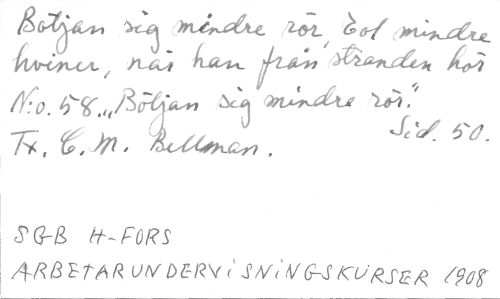 Böljan sig mindre rör, Eol mindre
hviner, när han från stranden hör
N:o. 58. „Böljan sig mindre rör."
Sid. 50.
Tx. C. M. Bellman.
SGB H-FORS
ARBETARUNDERVISNINGSKURSER 1908